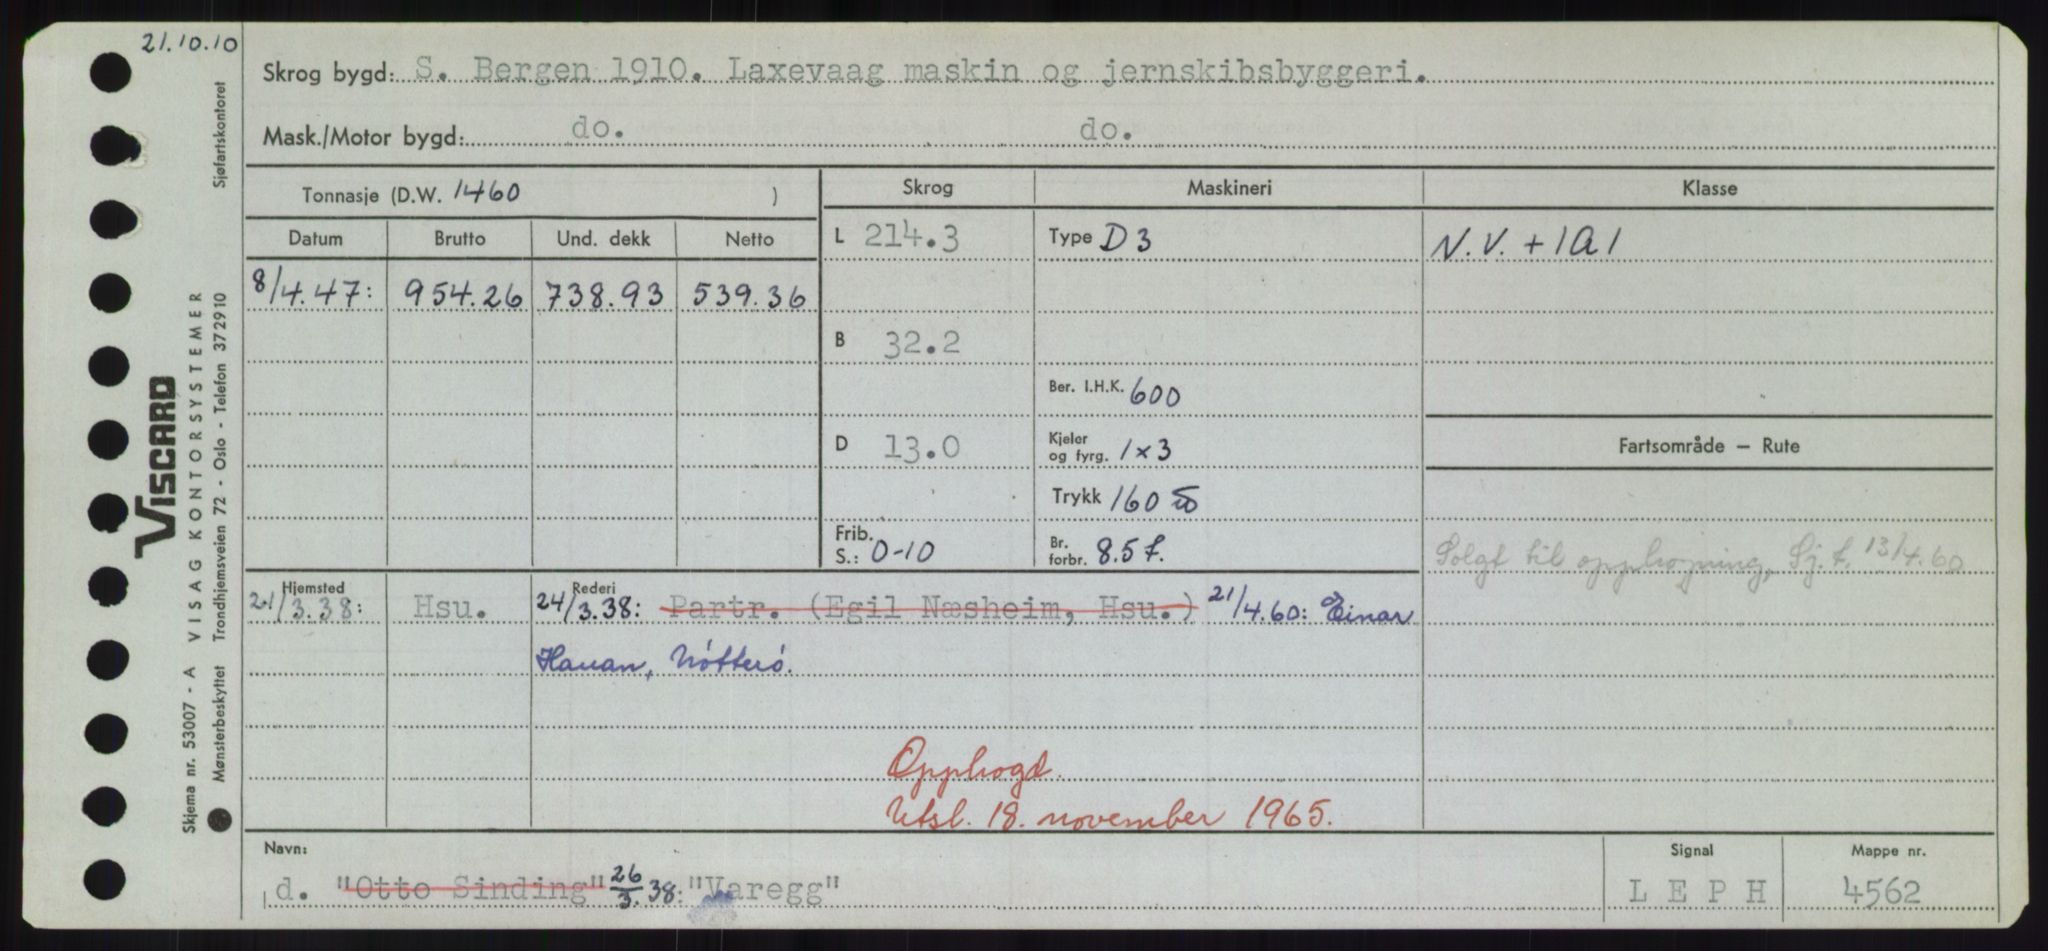 21.10.10
Skrog bygd: S. Bergen 1910. Laxevaag maskin og jernskibsbyggeri.
Mask./Motor bygd: do. do.
Tonnasje (D.W. 1460 )
Skrog Maskineri Klasse
Datum Brutto Und. dekk Netto
L 214.3 Type D3 N.V. + 1A1
8/4.47: 954.26 738.93 539.36
B 32.2
Ber. I.H.K. 600
D 13.0 Kjeler og fyrg. 1x3
Fartsområde — Rute
Trykk 160
Frib. S.: 0-10 Br. forbr. 8.5 t.
Solgt til opphogning, Sj.f. 13/4.60
Hjemsted Rederi
21/3.38: Hsu. 24/3.38: Partr. (Egil Næsheim, Hsu.) 21/4.60: Einar
Hauan, Nötterö.
Opphogd.
Utsl. 18. november 1965.
Navn: Signal Mappe nr.
d. "Otto Sinding" 26/3.38: "Varegg" L E P H 4562
Skjema nr. 53007 - A VISAG KONTORSYSTEMER Sjøfartskontoret
Mønsterbeskyttet Trondhjemsveien 72 - Oslo - Telefon 372910
VISCARD